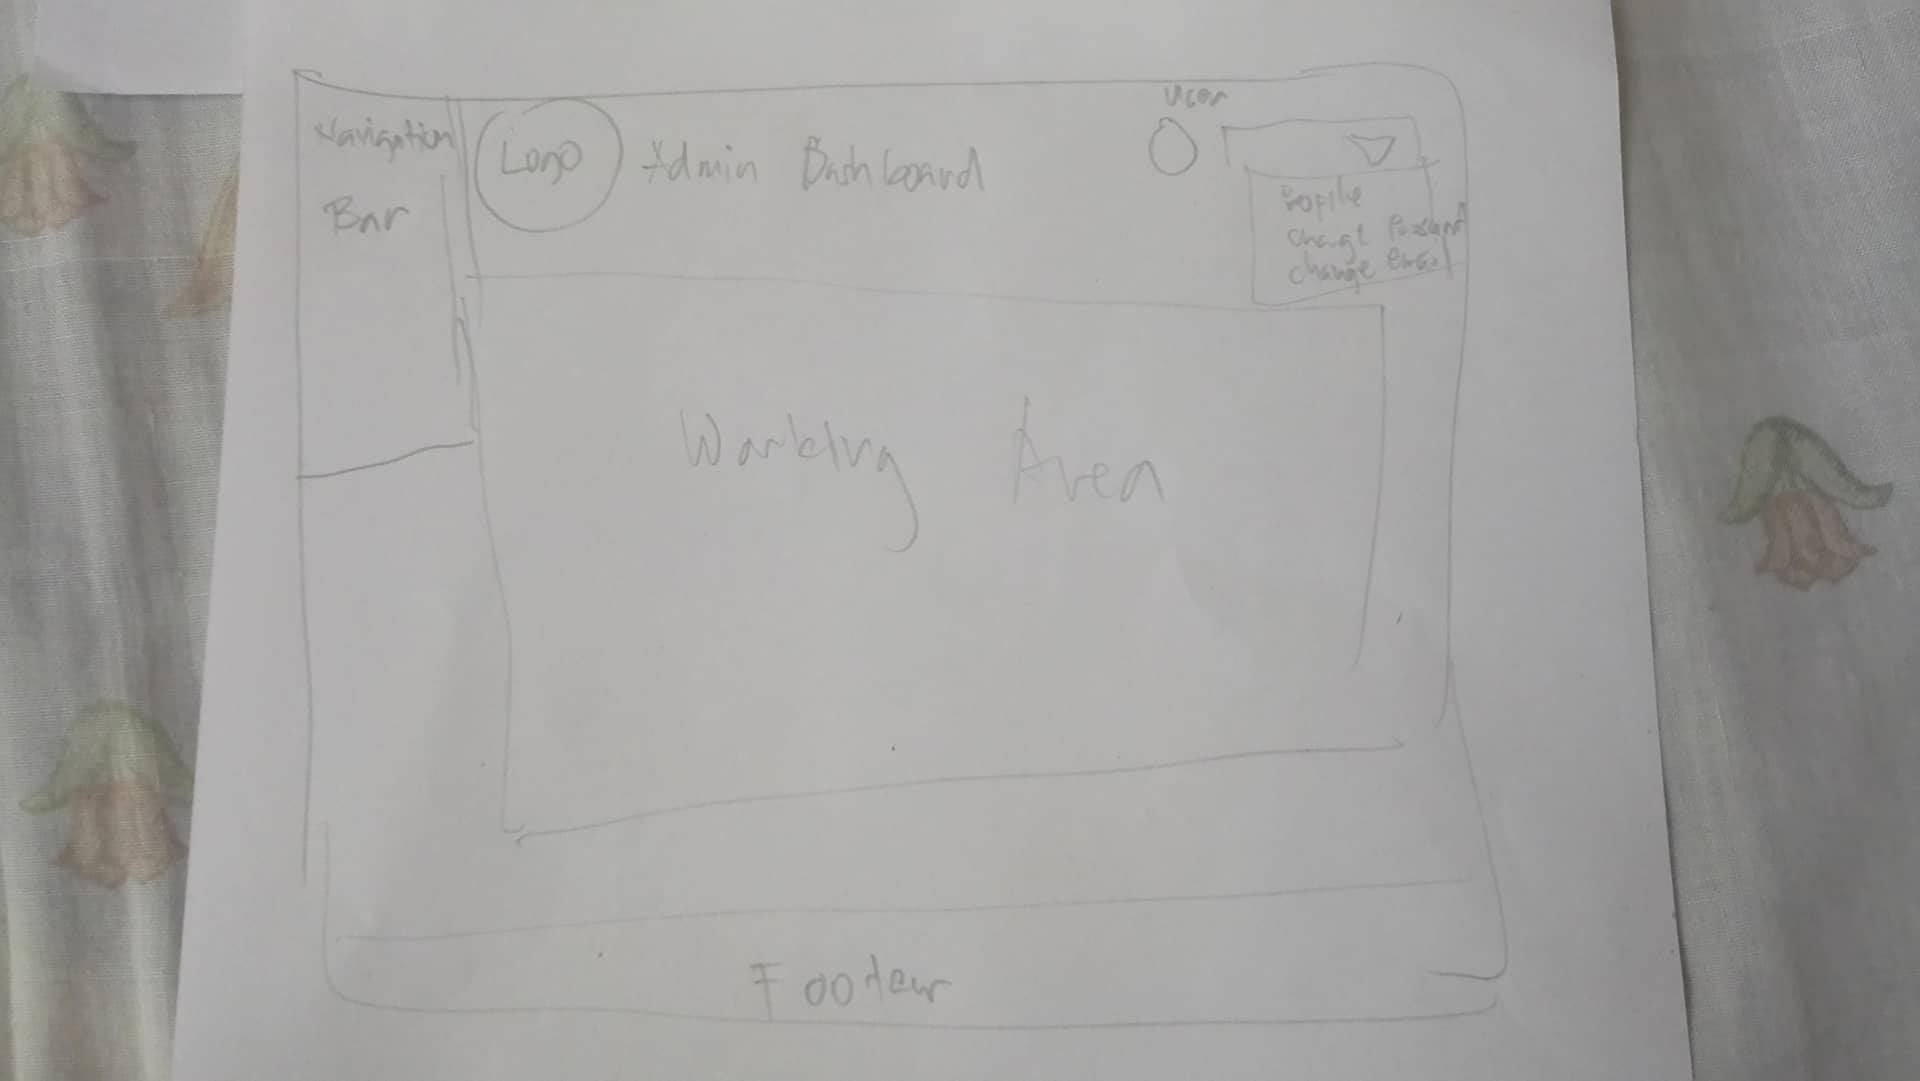 Navigation
Bar
Logo
Admin Dashboard
User
Profile
Change Password
change email
Working Area
Footer